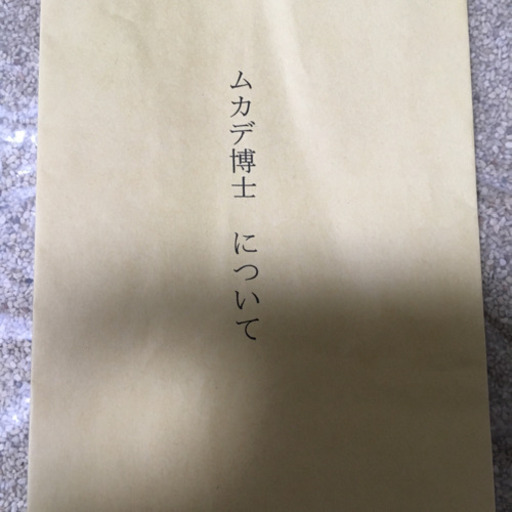 ムカデ博士　について